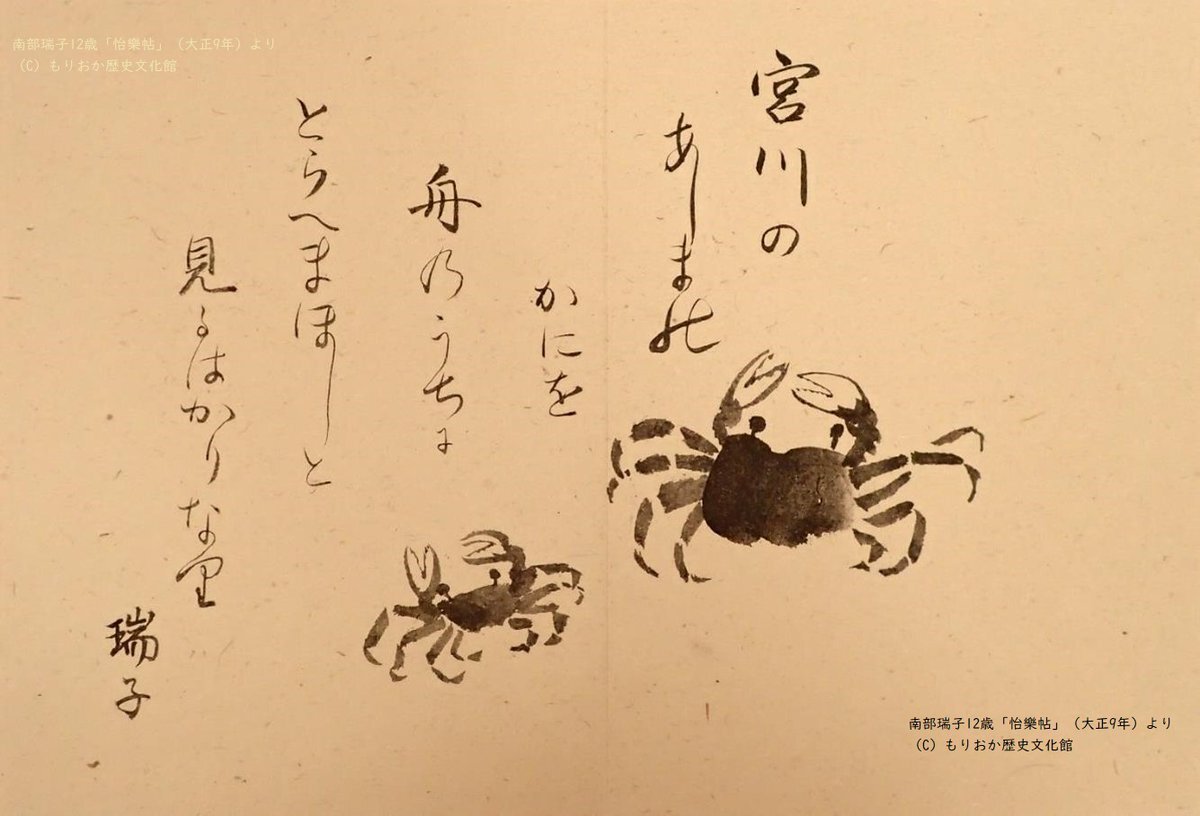 南部瑞子12歳「怡樂帖」（大正9年）より
（C）もりおか歴史文化館
宮川の
あしまの
かにを
舟乃うちに
とらへまほしと
見るはかりな里
瑞子
南部瑞子12歳「怡樂帖」（大正9年）より
（C）もりおか歴史文化館